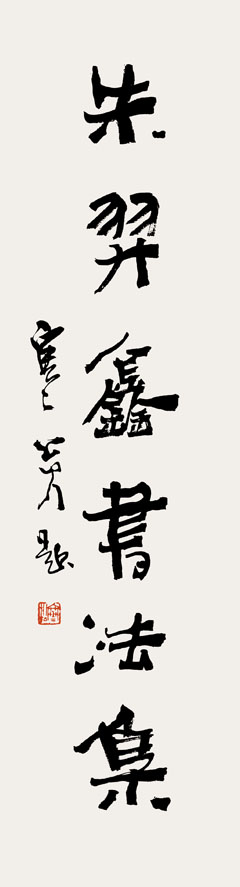 朱羿鑫書法集
題